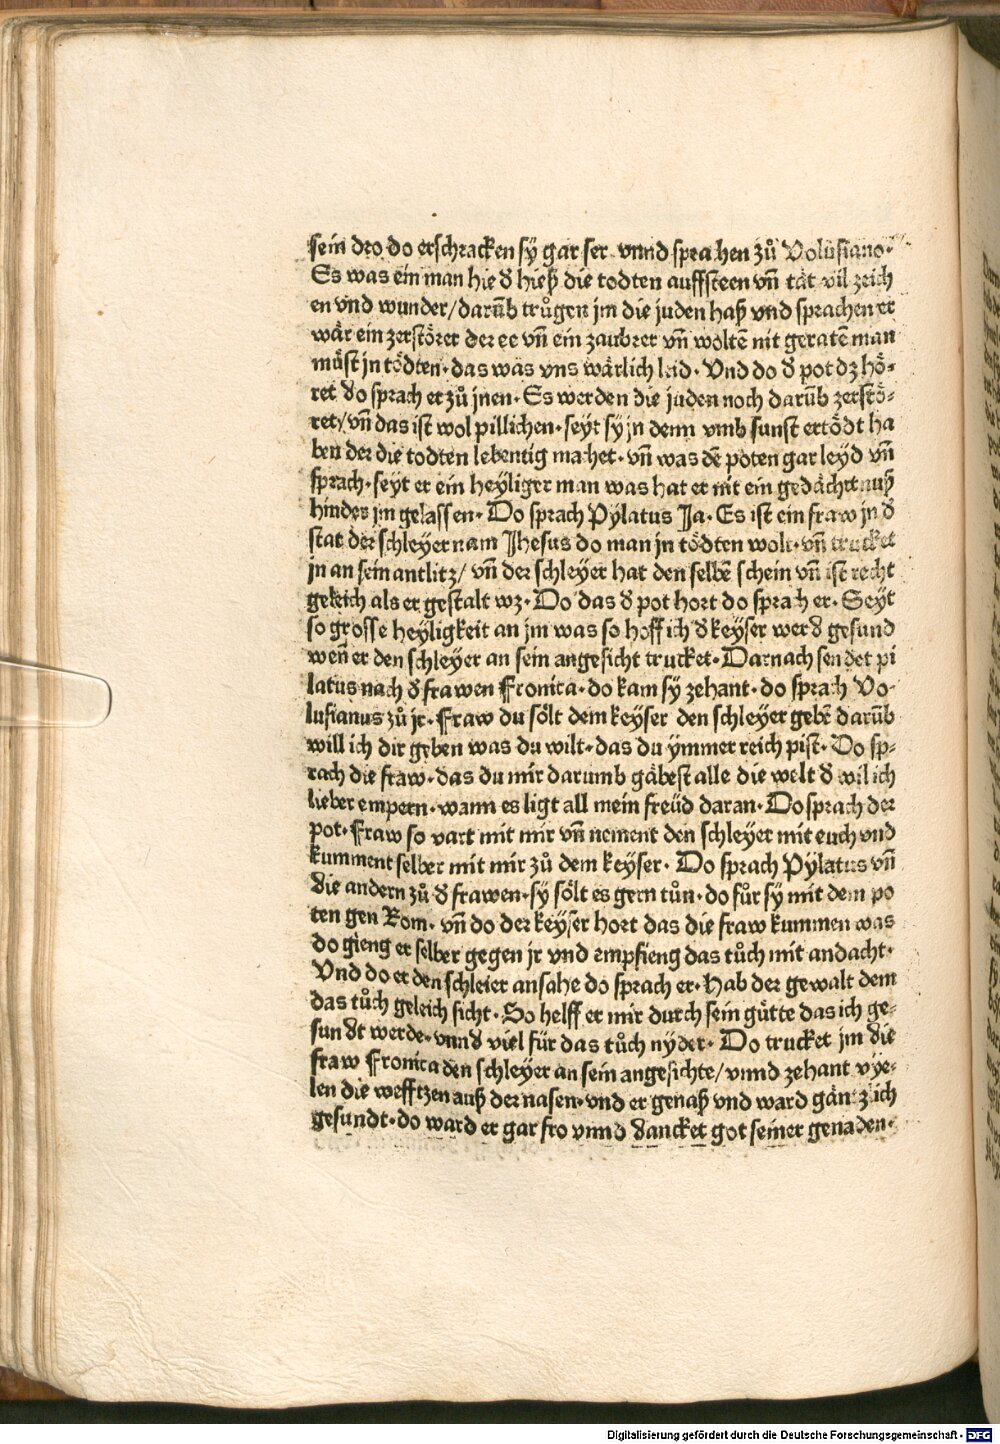 sein dro do erschracken sÿ gar ser vnnd sprahen zů Volusiano.
Es was ein man hie d̕ hieß die todten auffsteen vn̄ tät vil zeich
en vnd wunder/darūb trůgen jm die juden haß vnd sprachen er
wär ein zerstörer der ee vn̄ ein zaubrer vn̄ woltē nit geratē man
můst jn tödten. das was vns wärlich laid. Vnd do d̕ pot dz hö-
ret do sprach er zů jnen. Es werden die juden noch darūb zerstö-
ret/vn̄ das ist wol pillichen. seyt sÿ jn denn vmb sunst ertödt ha
ben der die todten lebentig machet. vn̄ was dē poten gar leÿd vn̄
sprach. seÿt er ein heÿliger man was hat er nit ein gedächtnuß
hinder jm gelassen. Do sprach Pÿlatus Ja. Es ist ein fraw jn d̕
stat der schleÿer nam Jhesus do man jn tödten wolt. vn̄ trucket
jn an sein antlitz/ vn̄ der schleÿer hat den selbē schein vn̄ ist recht
geleich als er gestalt wz. Do das d̕ pot hort do sprah er. Seÿt
so grosse heÿligkeit an jm was so hoff ich d̕ keÿser werd gesund
wen̄ er den schleÿer an sein angesicht trucket. Darnach sendet pi
latus nach d̕ frawen Fronica. do kam sÿ zehant. do sprach Vo-
lusianus zů jr. Fraw du sölt dem keÿser den schleÿer gebē darūb
will ich dir geben was du wilt. das du ÿmmer reich pist. Do sp-
rach die fraw. das du mir darumb gäbest alle die welt d̕ wil ich
lieber empern. wann es ligt all mein freüd daran. Do sprach der
pot. Fraw so vart mit mir vn̄ nement den schleÿer mit euch vnd
kumment selber mit mir zů dem keÿser. Do sprach Pÿlatus vn̄
die andern zů d̕ frawen. sÿ sölt es gern tůn. do fůr sÿ mit dem po
ten gen Rom. vn̄ do der keÿser hort das die fraw kummen was
do gieng er selber gegen jr vnd empfieng das tůch mit andacht.
Vnd do er den schleier ansahe do sprach er. Hab der gewalt dem
das tůch geleich sicht. So helff er mir durch sein gütte das ich ge-
sundt werde. vnnd viel für das tůch nÿder. Do trucket jm die
fraw Fronica den schleÿer an sein angesichte/vnnd zehant vÿe-
len die wefftzen auß der nasen. vnd er genaß vnd ward gäntzlich
gesundt. do ward er gar fro vnnd dancket got seiner genaden.
Digitalisierung gefördert durch die Deutsche Forschungsgemeinschaft - DFG